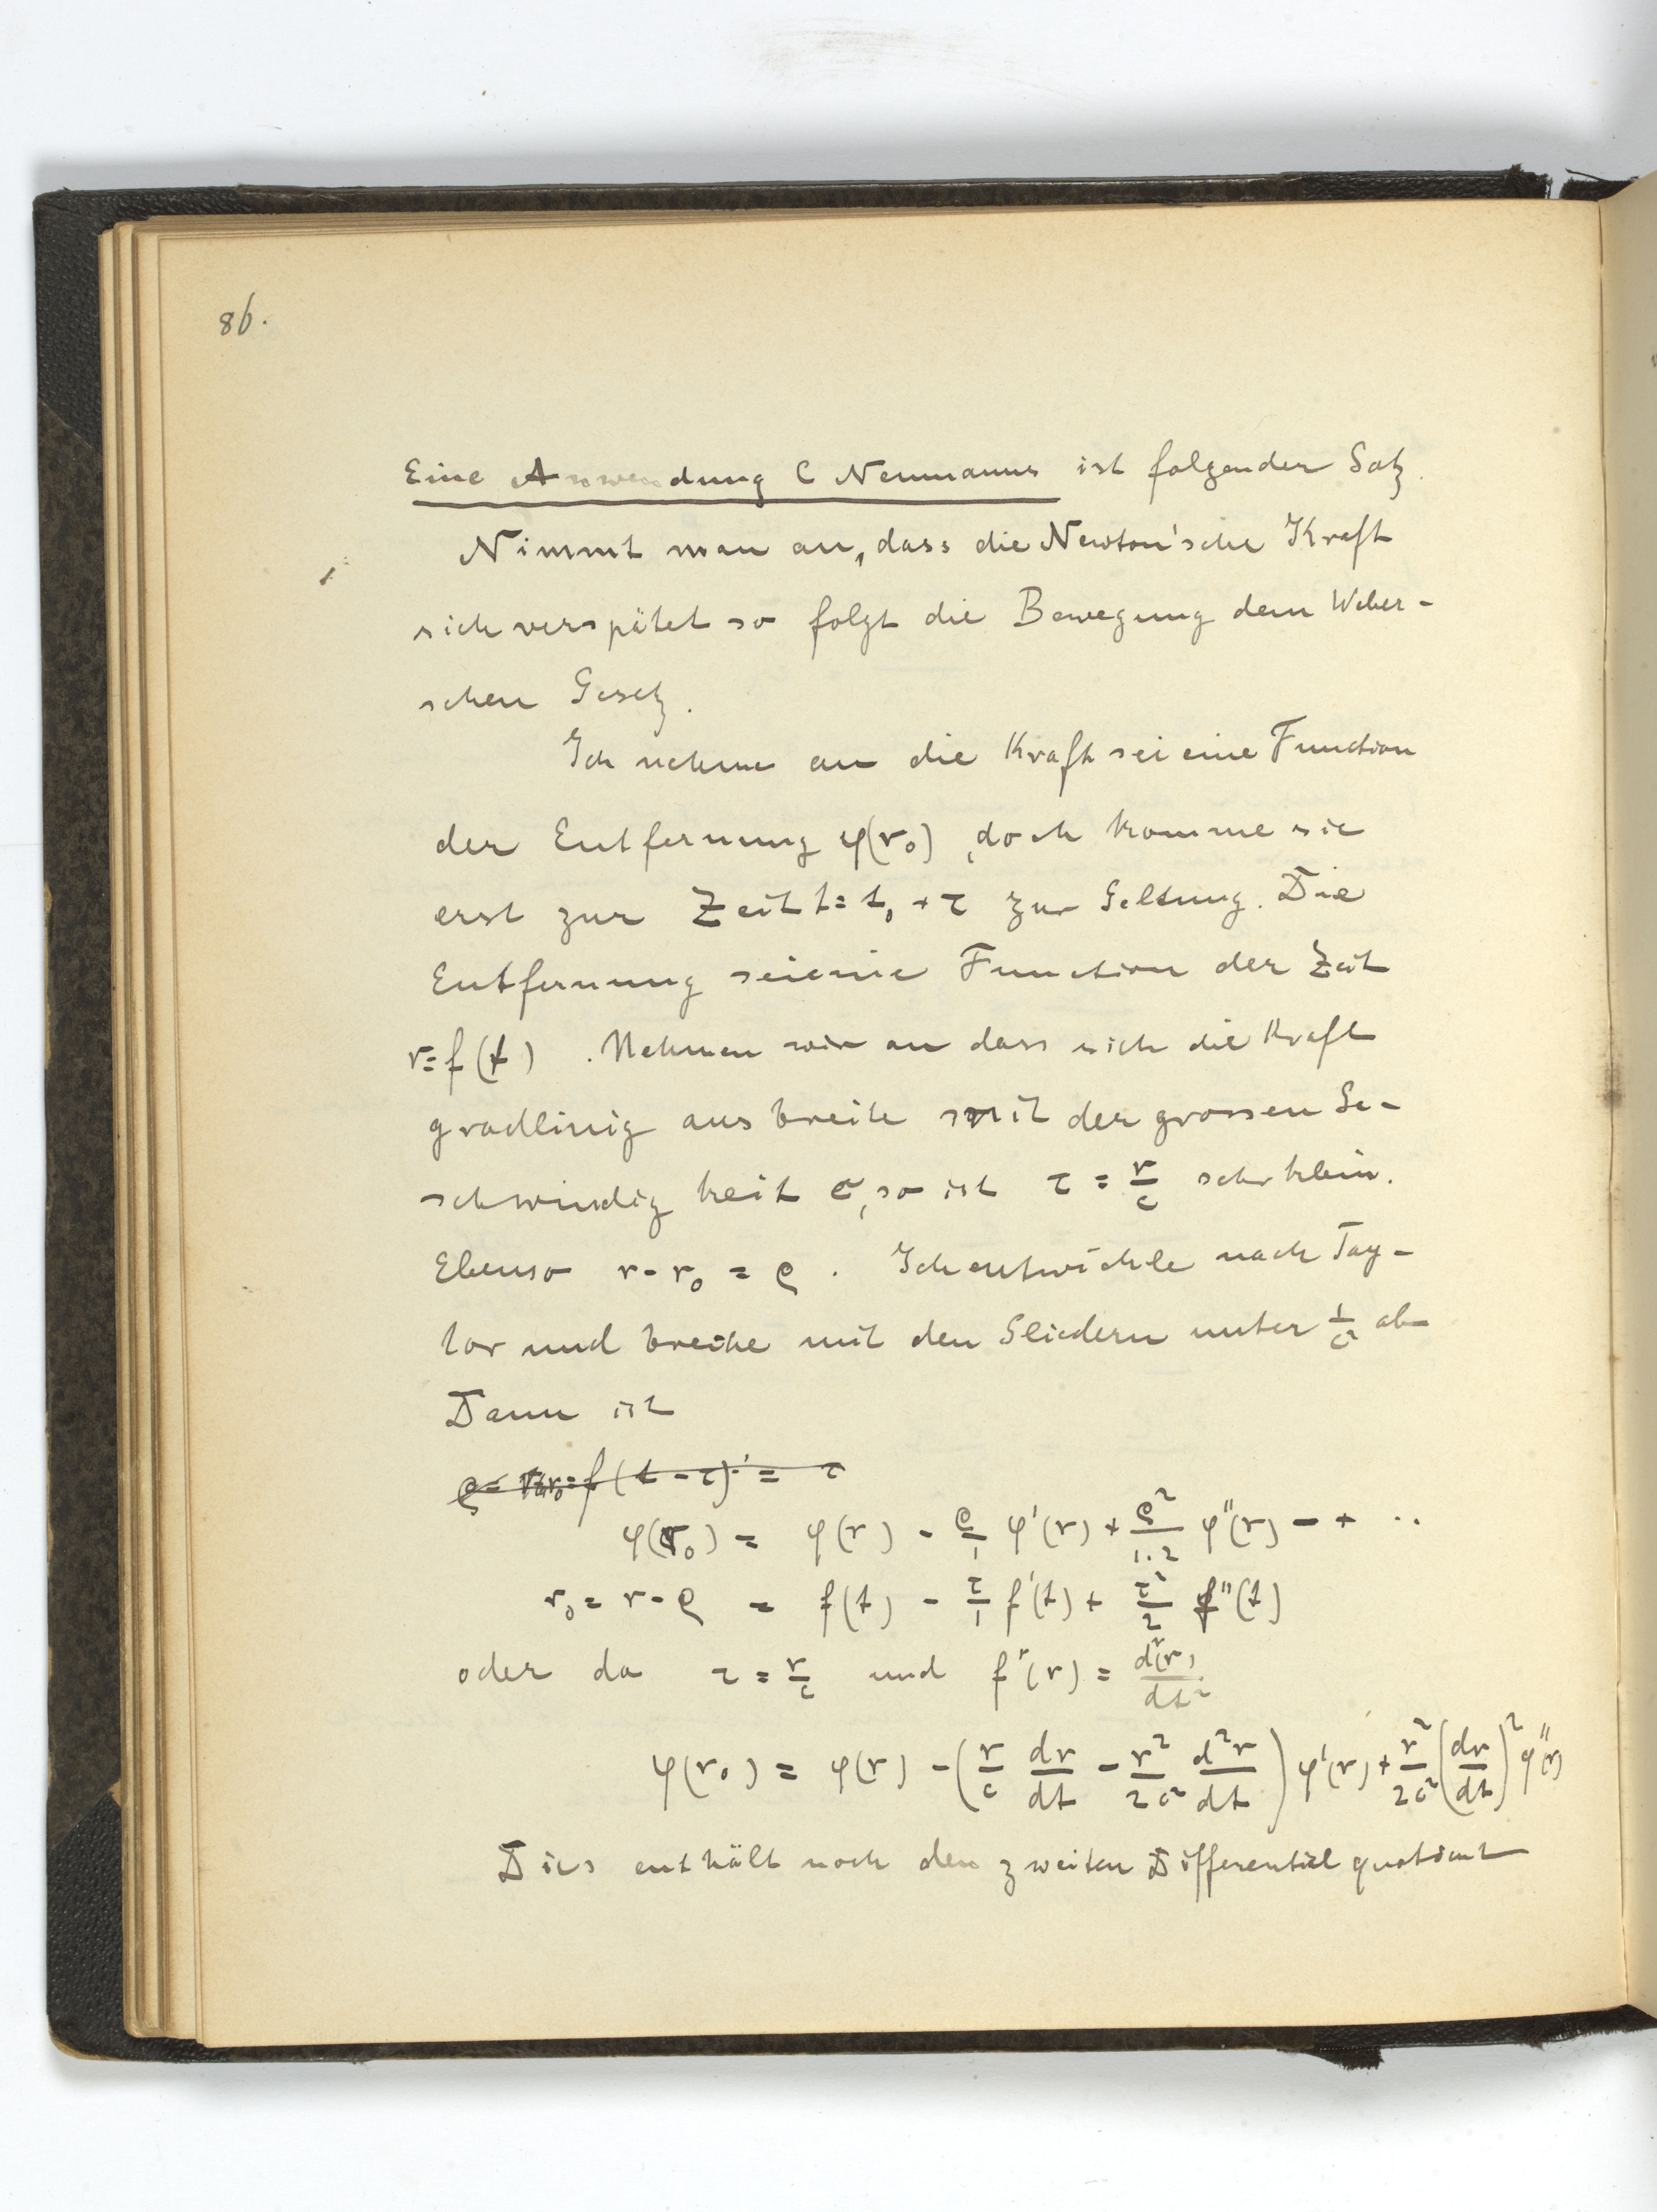 86.
Eine Anwendung C Neumanns ist folgender Satz.
Nimmt man an, dass die Newton'sche Kraft
sich verspätet so folgt die Bewegung dem Weber-
schen Gesetz.
Ich nehme an die Kraft sei eine Function
der Entfernung φ(r₀), doch komme sie
erst zur Zeit t = t₀ + τ zur Geltung. Die
Entfernung sei eine Function der Zeit
r = f(t). Nehmen wir an dass sich die Kraft
gradlinig ausbreite mit der grossen Ge-
schwindigkeit c, so ist τ = r/c sehr klein.
Ebenso r - r₀ = ρ. Ich entwickle nach Tay-
lor und breche mit den Gliedern unter 1/c² ab
Dann ist
f(t - τ) = τ
φ(r₀) = φ(r) - ρ/1 φ'(r) + ρ²/1.2 φ''(r) - + ..
r₀ = r - ρ = f(t) - τ/1 f'(t) + τ²/2 f''(t)
oder da τ = r/c und f''(r) = d²(r)/dt²
φ(r₀) = φ(r) - (r/c dr/dt - r²/2c² d²r/dt) φ'(r) + r²/2c² (dr/dt)² φ''(r)
Dies enthält noch den zweiten Differentialquotient